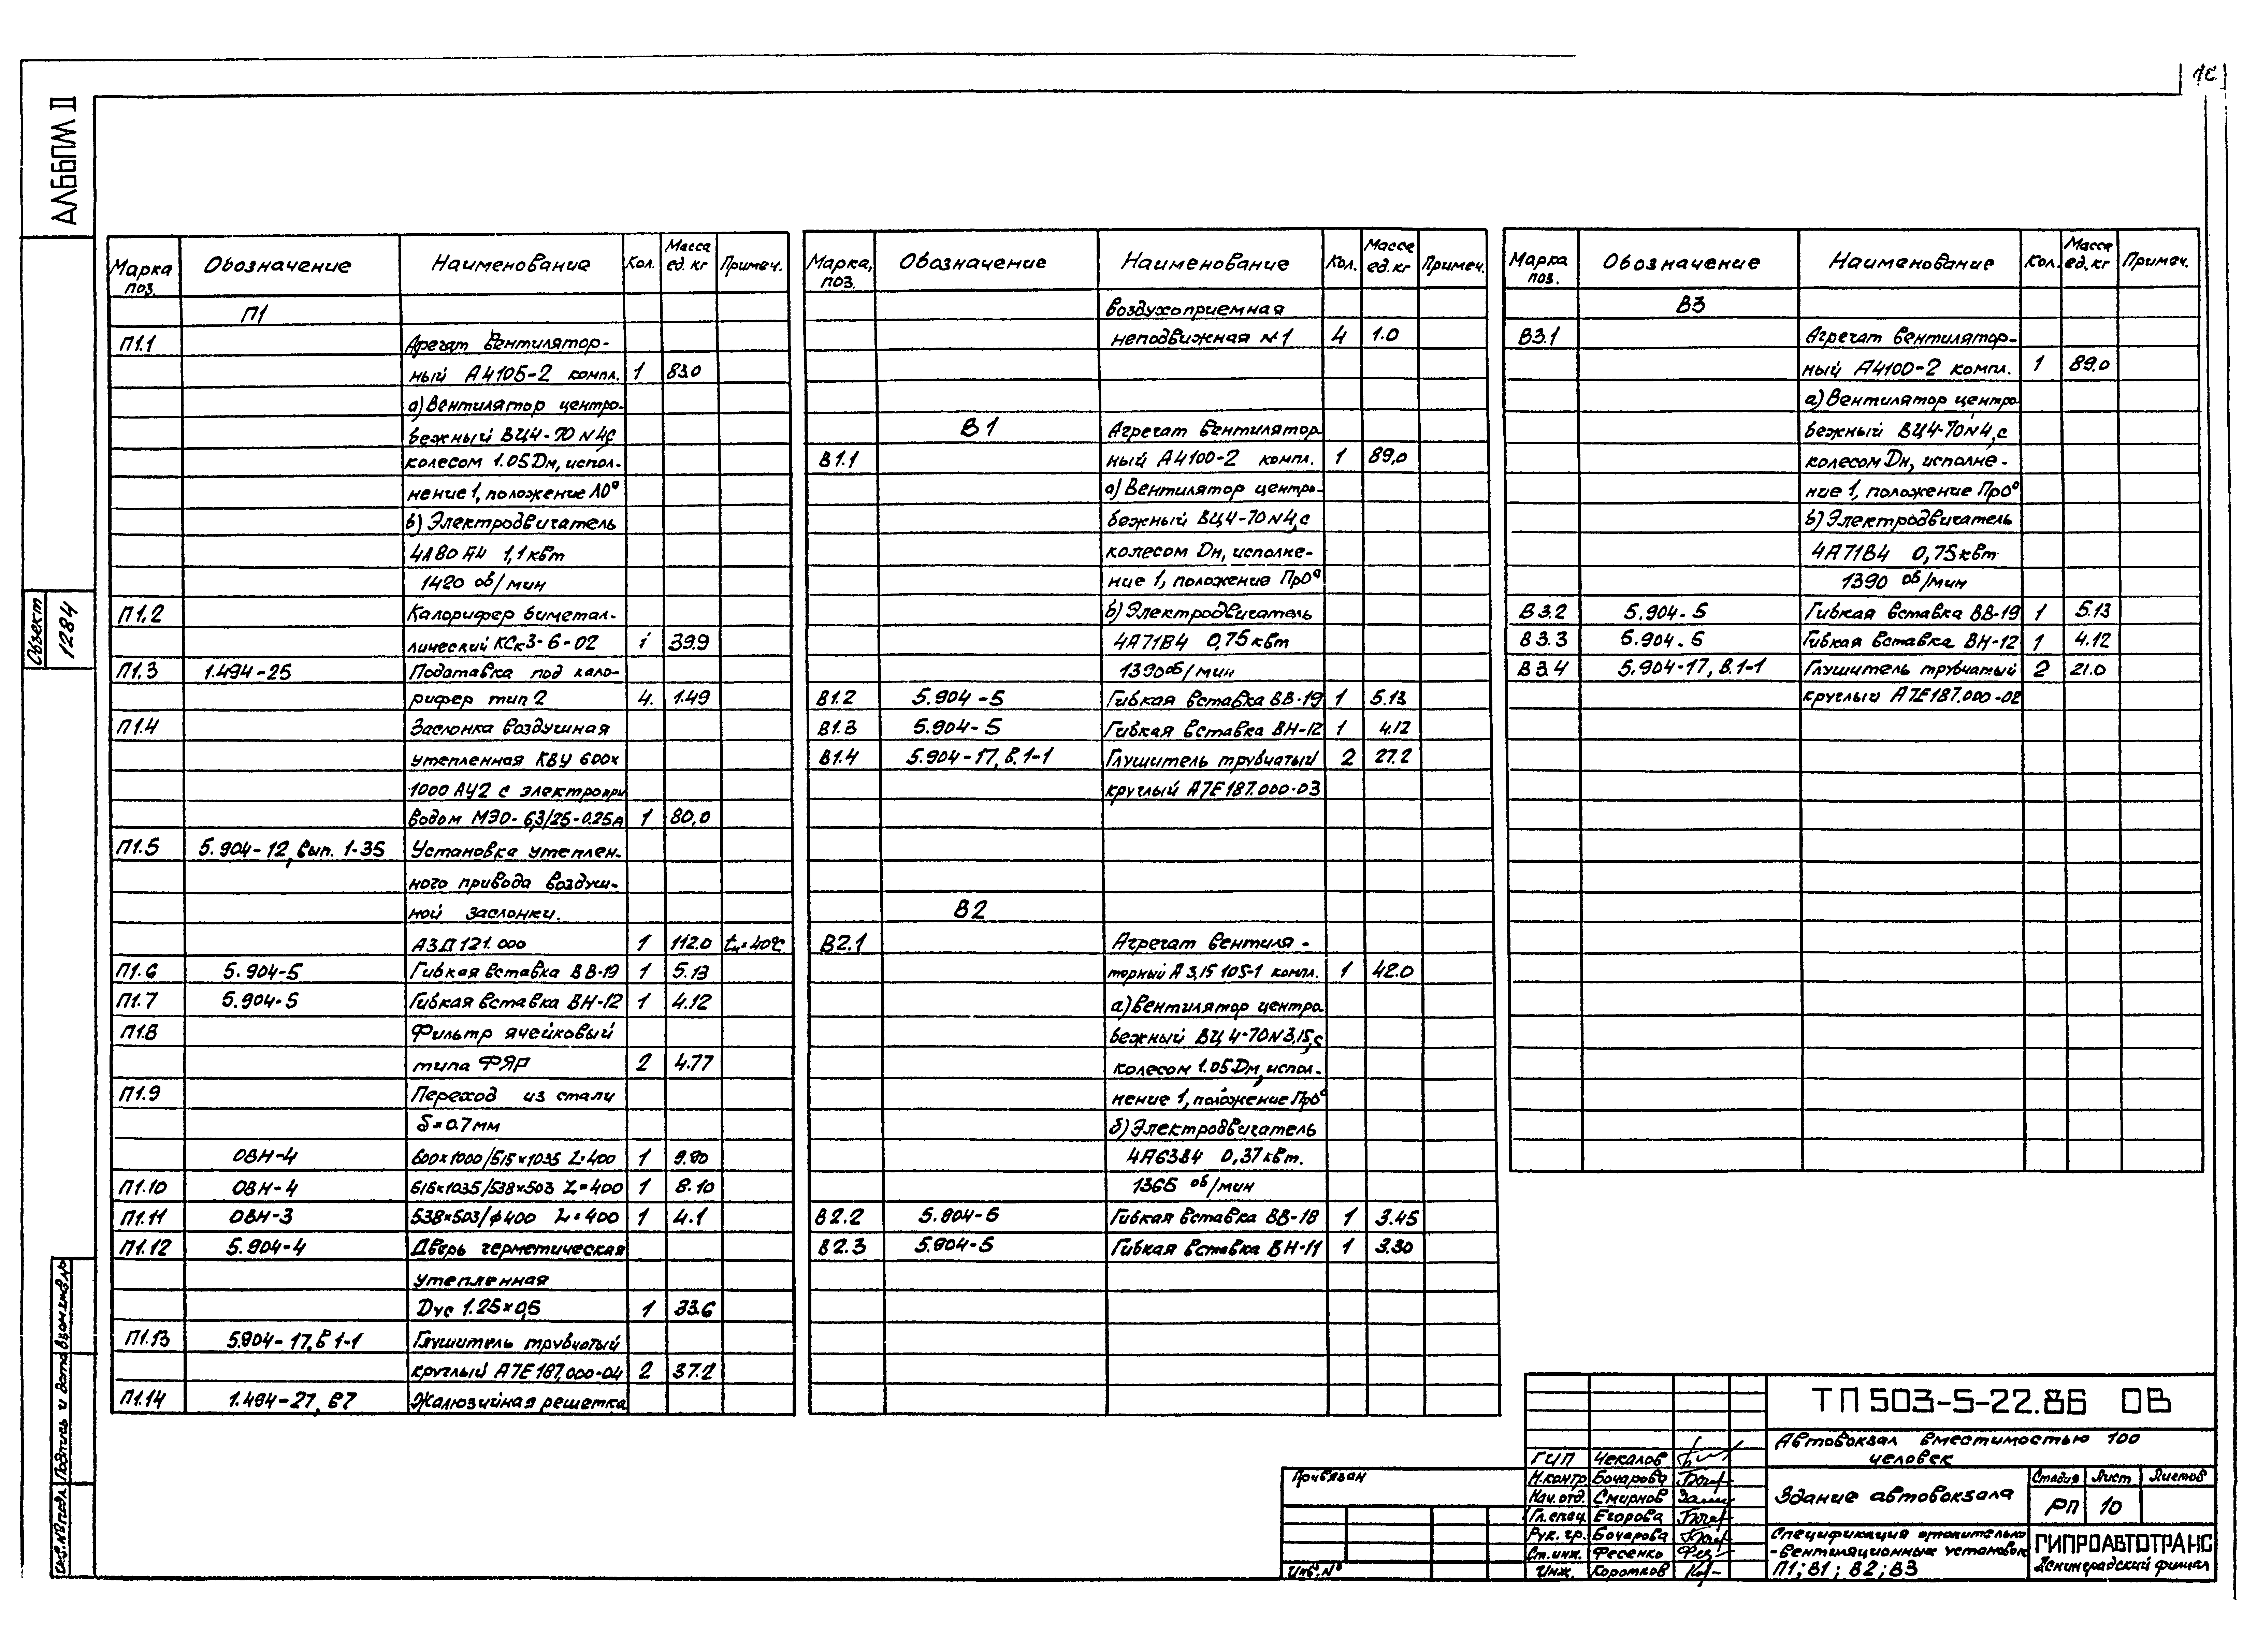 АЛЬБОМ II
Объект
1284
Подпись и дата
Взам.инв.№
Инв.№ подл.
Марка поз. Обозначение Наименование Кол. Масса ед. кг Примеч.
П1
П1.1 Арегат вентилятор-
ный А4105-2 компл. 1 83.0
а) Вентилятор центро-
бежный ВЦ4-70 N4,с
колесом 1.05 Dн, испол-
нение 1, положение Л0°
б) Электродвигатель
4А80А4 1,1 квт
1420 об/мин
П1.2 Калорифер биметал-
лический КСк3-6-02 1 39.9
П1.3 1.494-25 Подставка под кало-
рифер тип 2 4. 1.49
П1.4 Заслонка воздушная
утепленная КВУ 600х
1000 АУ2 с электропри
водом МЭО-6,3/25-0.25А 1 80,0
П1.5 5.904-12, вып. 1-35 Установка утеплен-
ного привода воздуш-
ной заслонки.
АЗД 121.000 1 112.0 tн=40°С
П1.6 5.904-5 Гибкая вставка ВВ-19 1 5.13
П1.7 5.904-5 Гибкая вставка ВН-12 1 4.12
П1.8 Фильтр ячейковый
типа ФЯР 2 4.77
П1.9 Переход из стали
δ=0.7мм
ОВН-4 600х1000/515х1035 L=400 1 9.90
П1.10 ОВН-4 515х1035/538х503 L=400 1 8.10
П1.11 ОВН-3 538х503/ф400 L=400 1 4.1
П1.12 5.904-4 Дверь герметическая
утепленная
Dус 1.25х0,5 1 33.6
П1.13 5.904-17, В 1-1 Глушитель трубчатый
круглый А7Е187.000-04 2 37.2
П1.14 1.494-27, В7 Жалюзийная решетка
Марка, поз. Обозначение Наименование Кол. Масса ед. кг Примеч.
воздухоприемная
неподвижная №1 4 1.0
В1 Агрегат вентилятор
В1.1 ный А4100-2 компл. 1 89,0
а) Вентилятор центро-
бежный ВЦ4-70 N4,с
колесом Dн, исполне-
ние 1, положение Пр0°
б) Электродвигатель
4А71В4 0,75 квт
1390 об/мин
В1.2 5.904-5 Гибкая вставка ВВ-19 1 5.13
В1.3 5.904-5 Гибкая вставка ВН-12 1 4.12
В1.4 5.904-17, В.1-1 Глушитель трубчатый 2 27.2
круглый А7Е187.000-03
В2
В2.1 Агрегат вентиля-
торный А 3,15 105-1 компл. 1 42.0
а) Вентилятор центро
бежный ВЦ 4-70 N3,15,с
колесом 1.05 Dн, испол-
нение 1, положение Пр0°
б) Электродвигатель
4А63В4 0,37 квт.
1365 об/мин
В2.2 5.904-5 Гибкая вставка ВВ-18 1 3.45
В2.3 5.904-5 Гибкая вставка ВН-11 1 3.30
Марка поз. Обозначение Наименование Кол. Масса ед. кг Примеч.
В3
В3.1 Агрегат вентилятор-
ный А4100-2 компл. 1 89,0
а) Вентилятор центро
бежный ВЦ4-70 N4,с
колесом Dн, исполне-
ние 1, положение Пр0°
б) Электродвигатель
4А71В4 0,75 квт
1390 об/мин
В3.2 5.904-5 Гибкая вставка ВВ-19 1 5.13
В3.3 5.904.5 Гибкая вставка ВН-12 1 4.12
В3.4 5.904-17, В.1-1 Глушитель трубчатый 2 21.0
круглый А7Е187.000-02
Привязан
Инв. №
ГИП Чекалов
Н.контр. Бочарова
Нач.отд. Смирнов
Гл.спец. Егорова
Рук. гр. Бочарова
Ст.инж. Фесенко
Инж. Коротков
ТП 503-5-22.86 ОВ
Автовокзал вместимостью 100
человек
Здание автовокзала
Стадия Лист Листов
РП 10
Спецификация отопительно
-вентиляционных установок
П1; В1; В2; В3
ГИПРОАВТОТРАНС
Ленинградский филиал